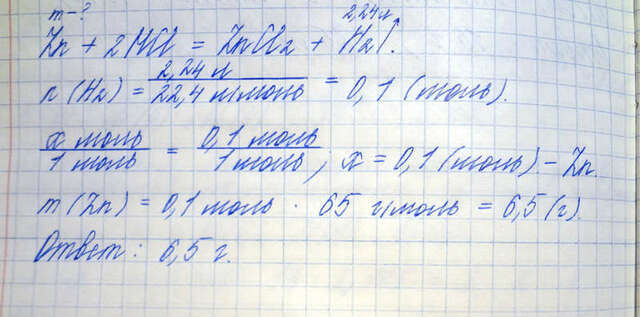 m-? 2,24 л
Zn + 2HCl = ZnCl₂ + H₂↑.
n(H₂) = 2,24 л / 22,4 л/моль = 0,1 (моль).
x моль / 1 моль = 0,1 моль / 1 моль, x = 0,1 (моль) - Zn
m(Zn) = 0,1 моль · 65 г/моль = 6,5 (г).
Ответ: 6,5 г.